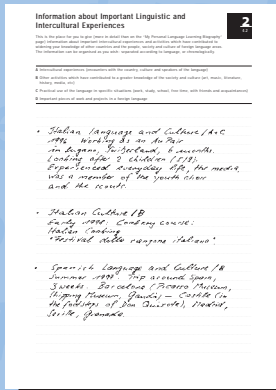 Information about Important Linguistic and
Intercultural Experiences
2
4.2
This is the place for you to give (more in detail than on the "My Personal Language Learning Biography"
page) information about important intercultural experiences and activities which have contributed to
widening your knowledge of other countries and the people, society and culture of foreign language areas.
The information can be organised as you wish: separated according to language, or chronologically.
A Intercultural experiences (encounters with the country, culture and speakers of the language)
B Other activities which have contributed to a greater knowledge of the society and culture (art, music, literature,
history, media etc)
C Practical use of the language in specific situations (work, study, school, free time, with friends and acquaintances)
D Important pieces of work and projects in a foreign language
• Italian Language and Culture / A+C
1996 Working as an Au Pair
in Lugano, Switzerland, 6 months.
Looking after 2 children (5/8).
Experienced everyday life, the media,
was a member of the youth choir
and the scouts.
• Italian Culture / B
Early 1998: Cookery course:
Italian Cooking
"Festival della canzone italiana".
• Spanish Language and Culture / B
Summer 1999. Trip around Spain,
3 weeks. Barcelona (Picasso Museum,
Shipping Museum, Gaudí) – Castile (in
the footsteps of Don Quixote), Madrid,
Seville, Granada.